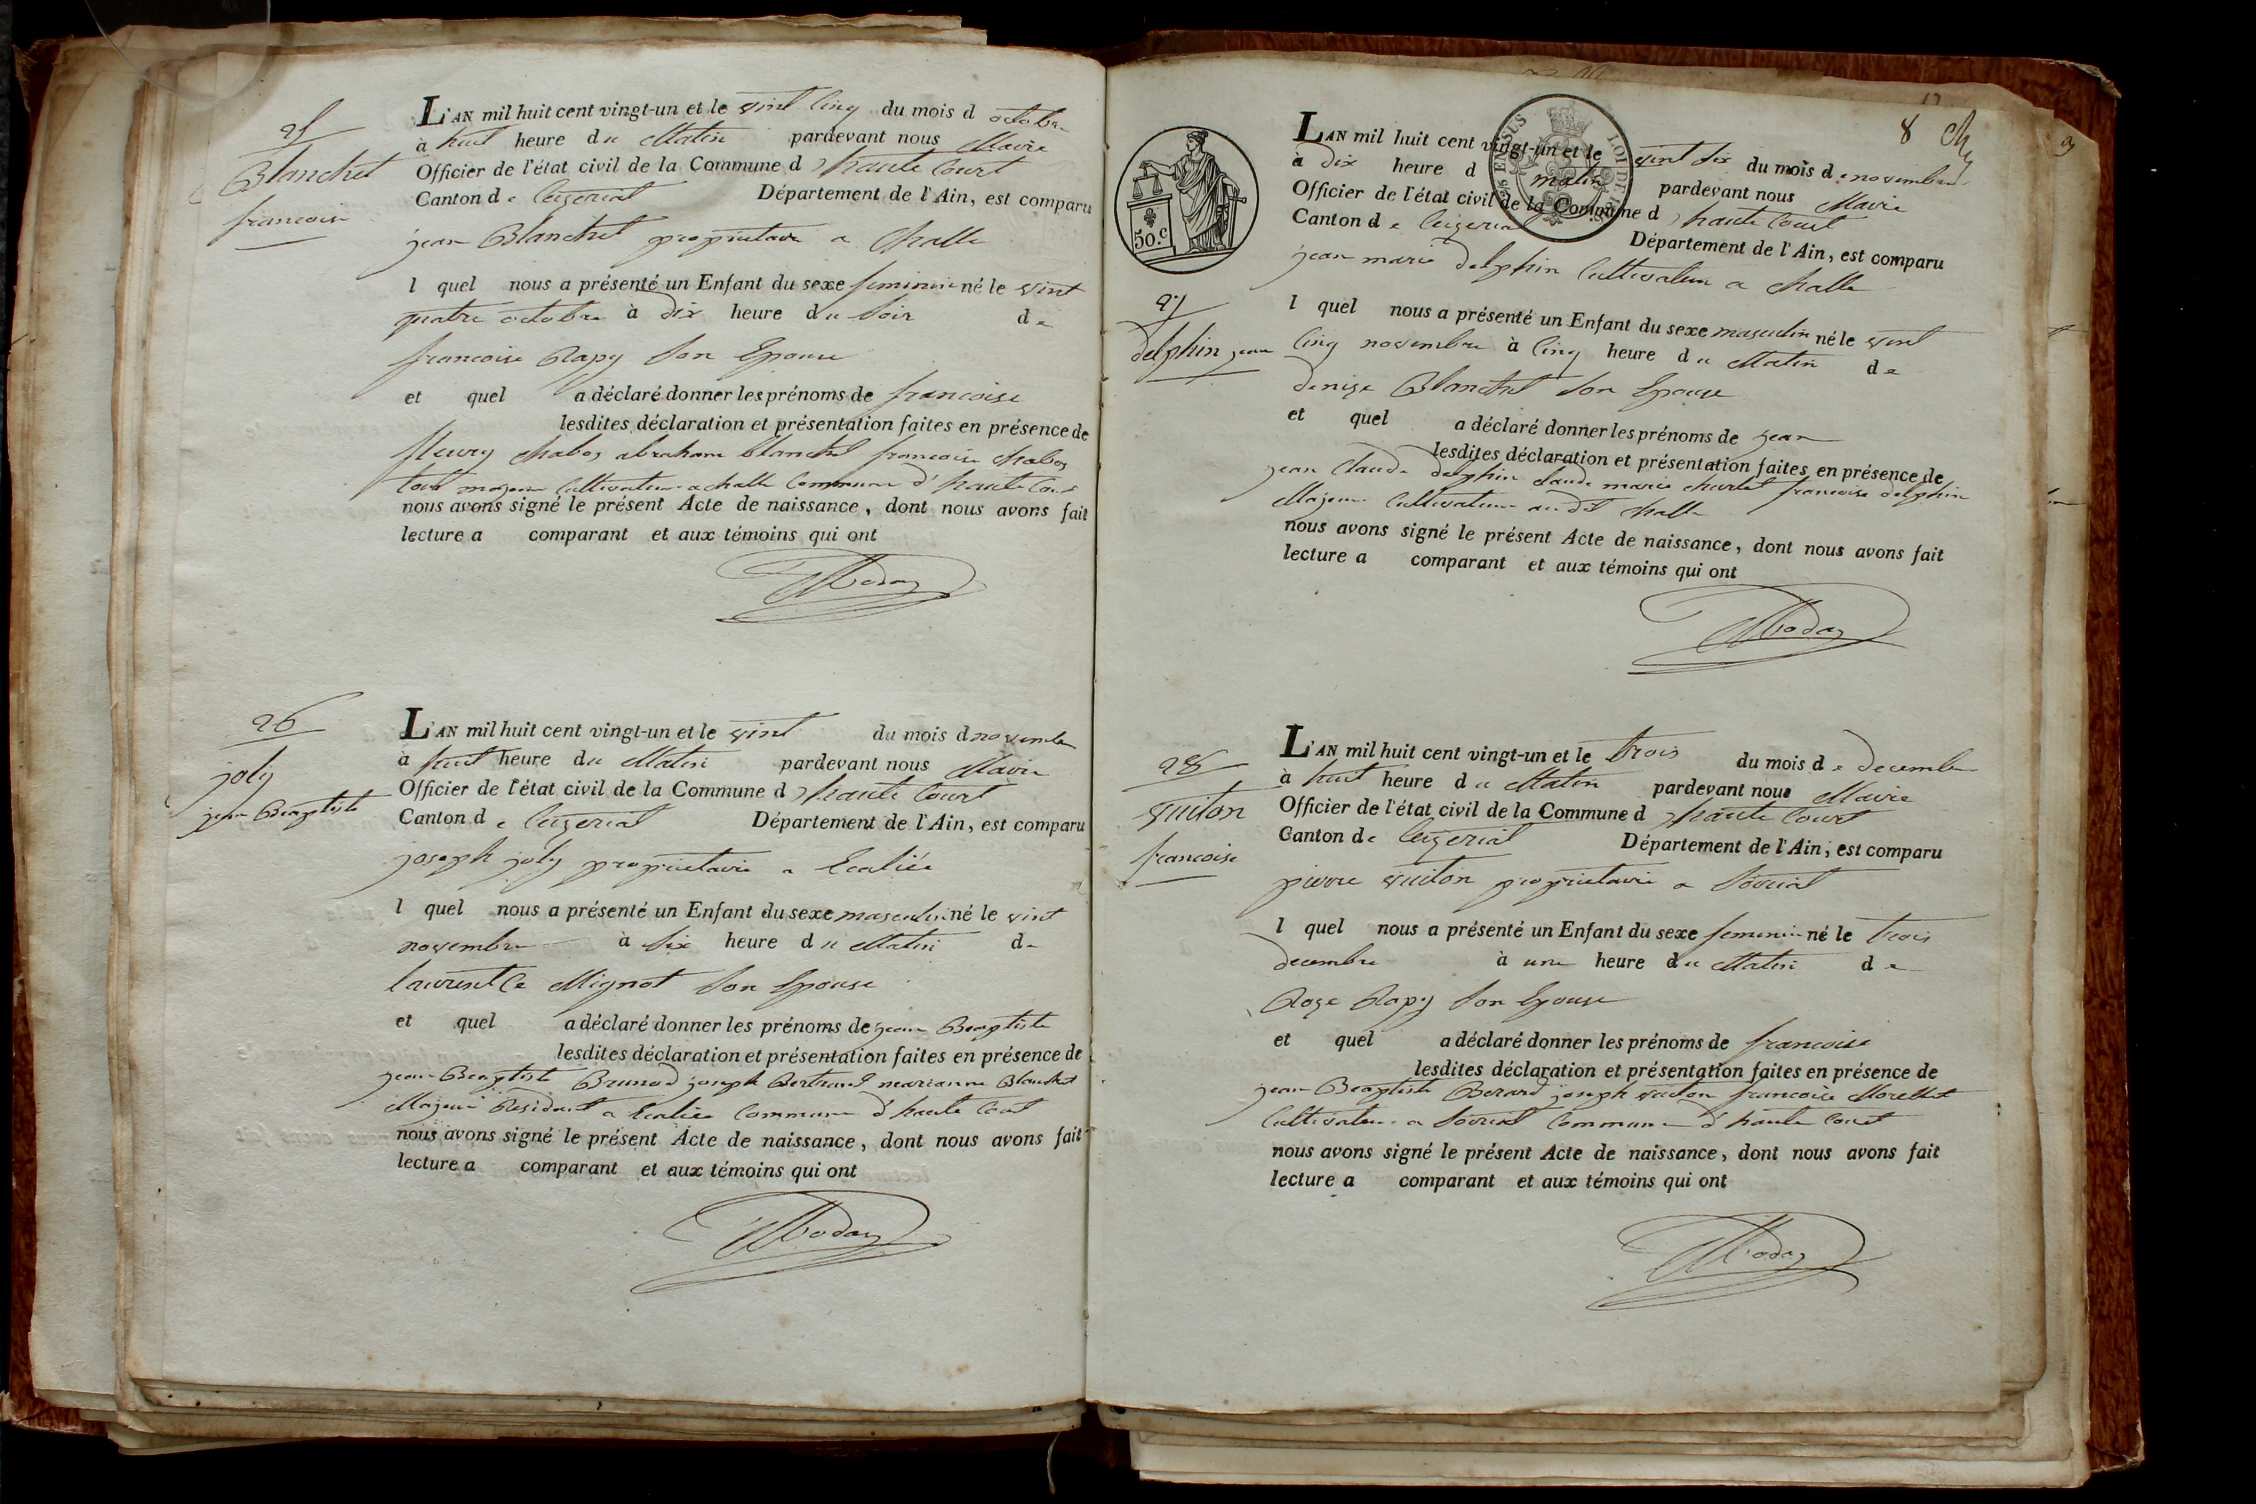 25
Blanchet
francoise
L'AN mil huit cent vingt-un et le vint cinq du mois d octobre
à huit heure du Matin pardevant nous Maire
Officier de l'état civil de la Commune d haute Court
Canton de Ceizeriat Département de l'Ain, est comparu
jean Blanchet propriétaire a Challe
l quel nous a présenté un Enfant du sexe feminin né le vint
quatre octobre à dix heure du soir de
francoise Rapy son Epouse
et quel a déclaré donner les prénoms de francoise
lesdites déclaration et présentation faites en présence de
fleury chaboz abraham blanchet francoise chaboz
tout majeur Cultivateur a challe Commune d'haute Court
nous avons signé le présent Acte de naissance, dont nous avons fait
lecture a comparant et aux témoins qui ont
26
joly
jean Beaptiste
L'AN mil huit cent vingt-un et le vint du mois d novembre
à huit heure du Matin pardevant nous Maire
Officier de l'état civil de la Commune d haute Court
Canton de Ceizeriat Département de l'Ain, est comparu
joseph joly propriétaire a
l quel nous a présenté un Enfant du sexe masculin né le vint
novembre à six heure du Matin de
laurentce Mignot son Epouse
et quel a déclaré donner les prénoms de jean Beaptiste
lesdites déclaration et présentation faites en présence de
jean Beaptiste Brunod joseph Bertrand marianne Blanchet
Majeur Residant a Commune d'haute Court
nous avons signé le présent Acte de naissance, dont nous avons fait
lecture a comparant et aux témoins qui ont
8
50.c
LOI DE 18
L'AN mil huit cent vingt-un et le vint six du mois de novembre
à dix heure d matin pardevant nous Maire
Officier de l'état civil de la Commune d haute Court
Canton de Ceizeriat Département de l'Ain, est comparu
jean marie delphin Cultivateur a challe
27
delphin jean
l quel nous a présenté un Enfant du sexe masculin né le vint
cinq novembre à cinq heure du Matin de
denize Blanchet son Epouse
et quel a déclaré donner les prénoms de jean
lesdites déclaration et présentation faites en présence de
jean Claude delphin claude marie francoise delphin
Majeur Cultivateur audit challe
nous avons signé le présent Acte de naissance, dont nous avons fait
lecture a comparant et aux témoins qui ont
28
vuiton
francoise
L'AN mil huit cent vingt-un et le trois du mois de decembre
à huit heure du Matin pardevant nous Maire
Officier de l'état civil de la Commune d haute Court
Canton de Ceizeriat Département de l'Ain, est comparu
pierre vuiton propriétaire a
l quel nous a présenté un Enfant du sexe feminin né le trois
decembre à une heure du Matin de
Roze Rapy son Epouse
et quel a déclaré donner les prénoms de francoise
lesdites déclaration et présentation faites en présence de
jean Beaptiste Berard joseph vuiton francoise Morellet
Cultivateur a Commune d'haute Court
nous avons signé le présent Acte de naissance, dont nous avons fait
lecture a comparant et aux témoins qui ont